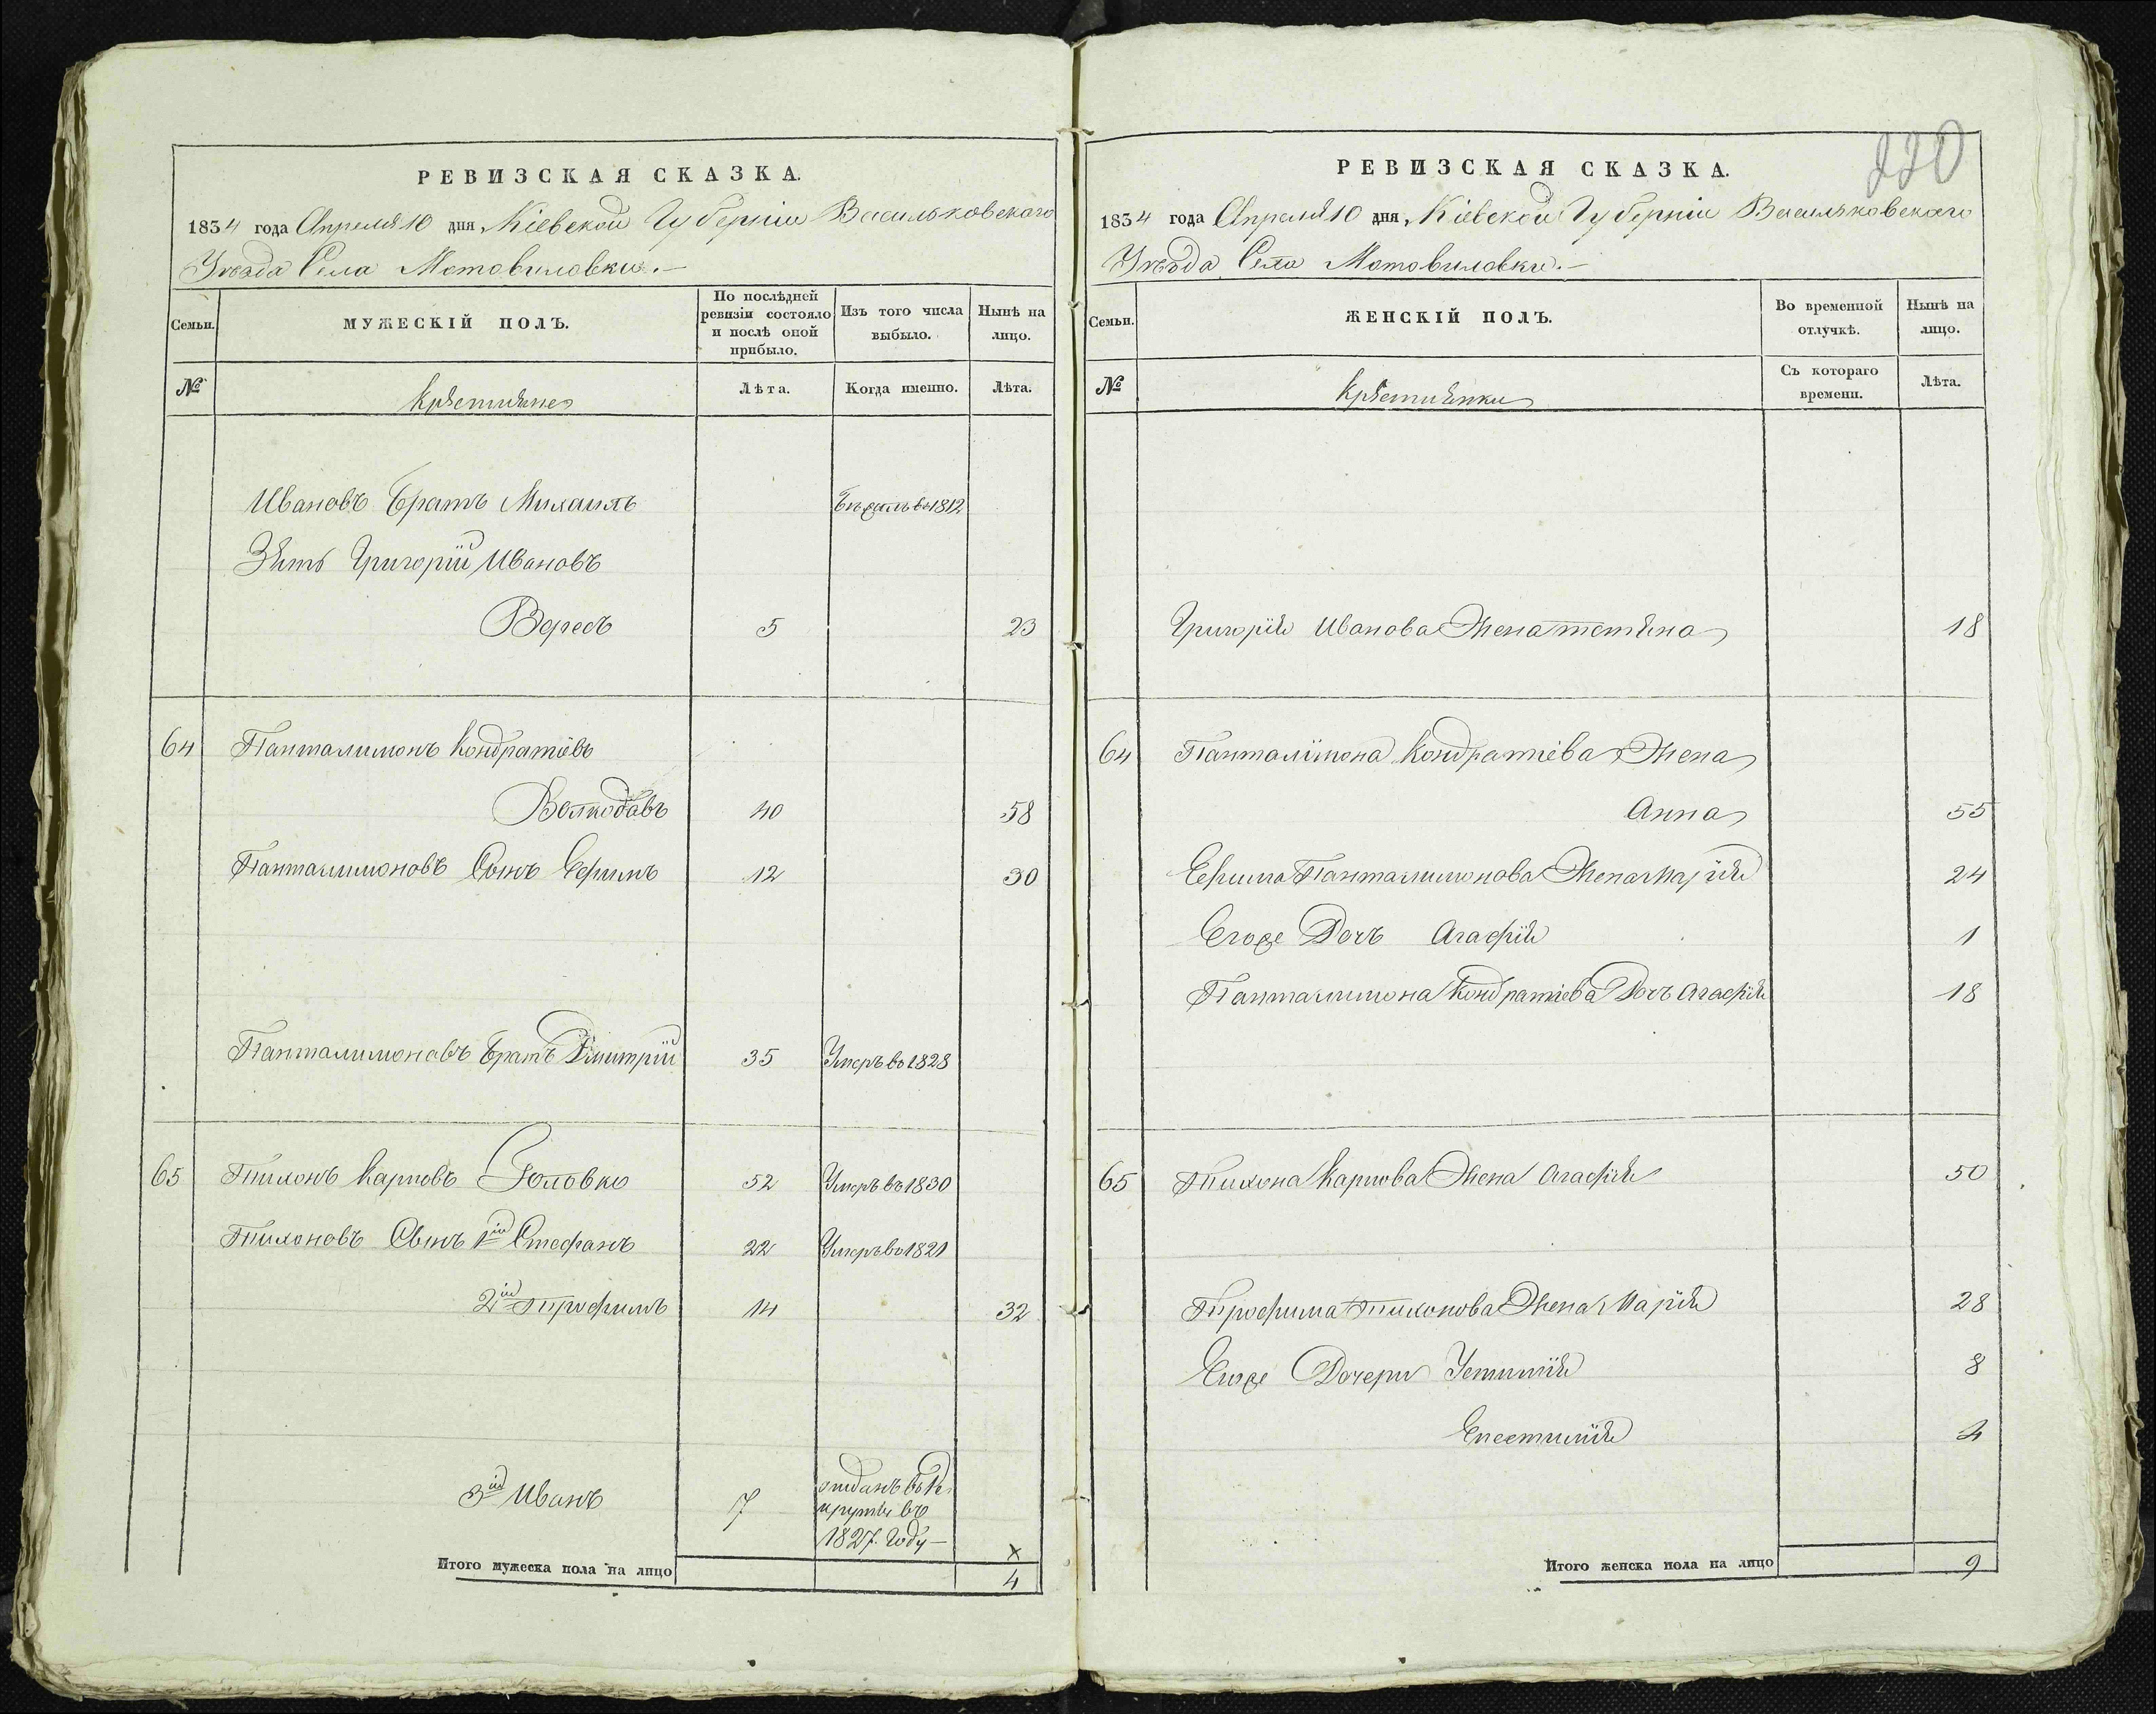 РЕВИЗСКАЯ СКАЗКА.
1834 года Апреля 10 дня Кіевской Губерніи Васильковского
Уезда Села Мотовиловки.—
Семьи.
МУЖЕСКІЙ ПОЛЪ.
По послѣдней ревизіи состояло и послѣ оной прибыло.
Изъ того числа выбыло.
Нынѣ на лицо.
№
Крестяне
Лѣта.
Когда именно.
Лѣта.
Ивановъ братъ Михаилъ 1812
Зять Григорій Ивановъ
Вересъ 5 23
64 Панталимонъ Кондратіевъ
Волкодавъ 40 58
Панталимоновъ Сынъ Ефимъ 12 30
Панталимоновъ братъ Дмитрій 35 Умеръ во 1828
65 Тихонъ Карповъ Головко 52 Умеръ въ 1830
Тихоновъ Сынъ 1й Стефанъ 22 Умеръ во 1821
2й Трофимъ 14 32
3й Иванъ 7 отданъ въ Рекруты въ 1827. Году—
Итого мужеска пола на лицо 4
220
РЕВИЗСКАЯ СКАЗКА.
1834 года Апреля 10 дня Кіевской Губерніи Васильковского
Уезда Села Мотовиловки.—
Семьи.
ЖЕНСКІЙ ПОЛЪ.
Во временной отлучкѣ.
Нынѣ на лицо.
№
Крестянки
Съ котораго времени.
Лѣта.
Григорія Иванова Жена Тетяна 18
64 Панталімона Кондратіева Жена
Анна 55
Ефима Панталимонова Жена Марія 24
Егоже Дочъ Агафія 1
Панталимона Кондратіева Дочъ Агафія 18
65 Тихона Карпова Жена Агафія 50
Трофима Тихонова Жена Марія 28
Егоже Дочери Устинія 8
Епестинія 4
Итого женска пола на лицо 9